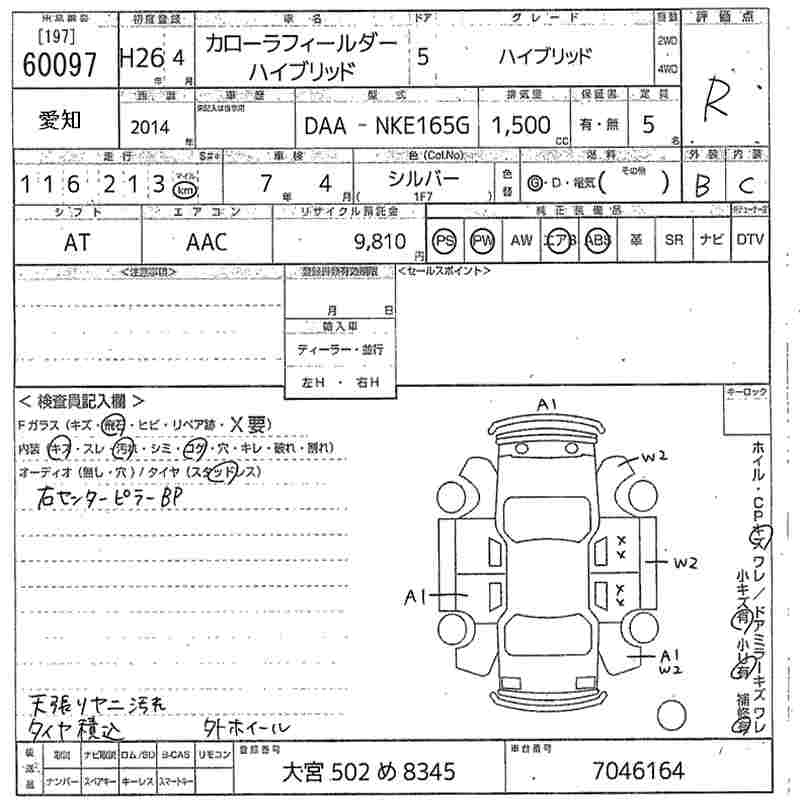 出品番号 初度登録 車名 ドア グレード 駆動 評価点
[197]
60097 H26年 4月 カローラフィールダー ハイブリッド 5 ハイブリッド 2WD 4WD R
愛知 西暦 車歴 型式 排気量 保証書 定員
2014年 DAA - NKE165G 1,500cc 有・無 5名
走行 S#* 車検 色(Col.No) 色替 燃料 外装 内装
116213 マイル km 7年 4月 シルバー (1F7) G・D・電気 (その他) B C
シフト エアコン リサイクル預託金 純正装備品
AT AAC 9,810円 PS PW AW エアB ABS 革 SR ナビ DTV
<注意事項> <セールスポイント>
月 日
輸入車
ディーラー・並行
左H ・ 右H
<検査員記入欄> キーロック
Fガラス(キズ・飛石・ヒビ・リペア跡・X要)
内装(キズ・スレ・汚れ・シミ・コゲ・穴・キレ・破れ・割れ)
オーディオ(無し・穴)/タイヤ(スタッドレス)
右センターピラーBP
A1
W2
XX
W2
A1
XX
A1
W2
ホイル・CPキズワレ/ドアミラーキズワレ
小キズ有 小U有 補修有
天張リヤニ汚れ
タイヤ積込 外ホイール
後送品 取説 ナビ取説 ロム/SD B-CAS リモコン 登録番号 車台番号
ナンバー スペアキー キーレス スマートキー 大宮 502 め 8345 7046164